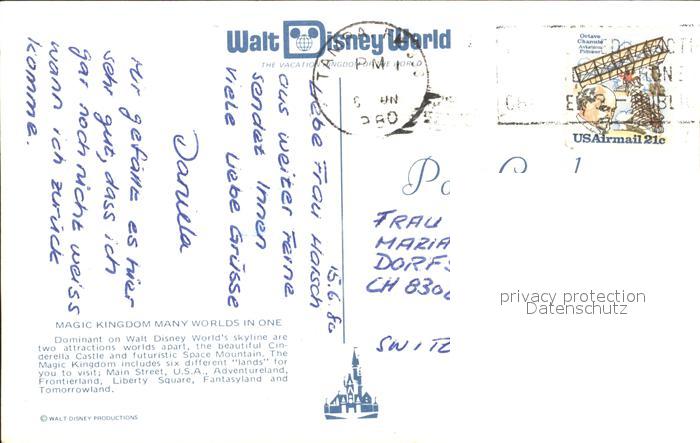 Walt Disney World
THE VACATION KINGDOM OF THE WORLD
TAMPA
PM
JUN
1980
Octave
Chanute
Aviation
Pioneer
USAirmail 21c
15.6.80
Liebe Frau Harsch
aus weiter Ferne
sendet Innen
viele Liebe Grüsse
Daniela
Mir gefällt es hier
sehr gut, dass ich
gar noch nicht weiss
wann ich zurück
komme.
FRAU
MARIA
DORFS
CH 830
SWITZ
privacy protection
Datenschutz
MAGIC KINGDOM MANY WORLDS IN ONE
Dominant on Walt Disney World's skyline are
two attractions worlds apart, the beautiful Cin-
derella Castle and futuristic Space Mountain. The
Magic Kingdom includes six different "lands" for
you to visit; Main Street, U.S.A., Adventureland,
Frontierland, Liberty Square, Fantasyland and
Tomorrowland.
© WALT DISNEY PRODUCTIONS